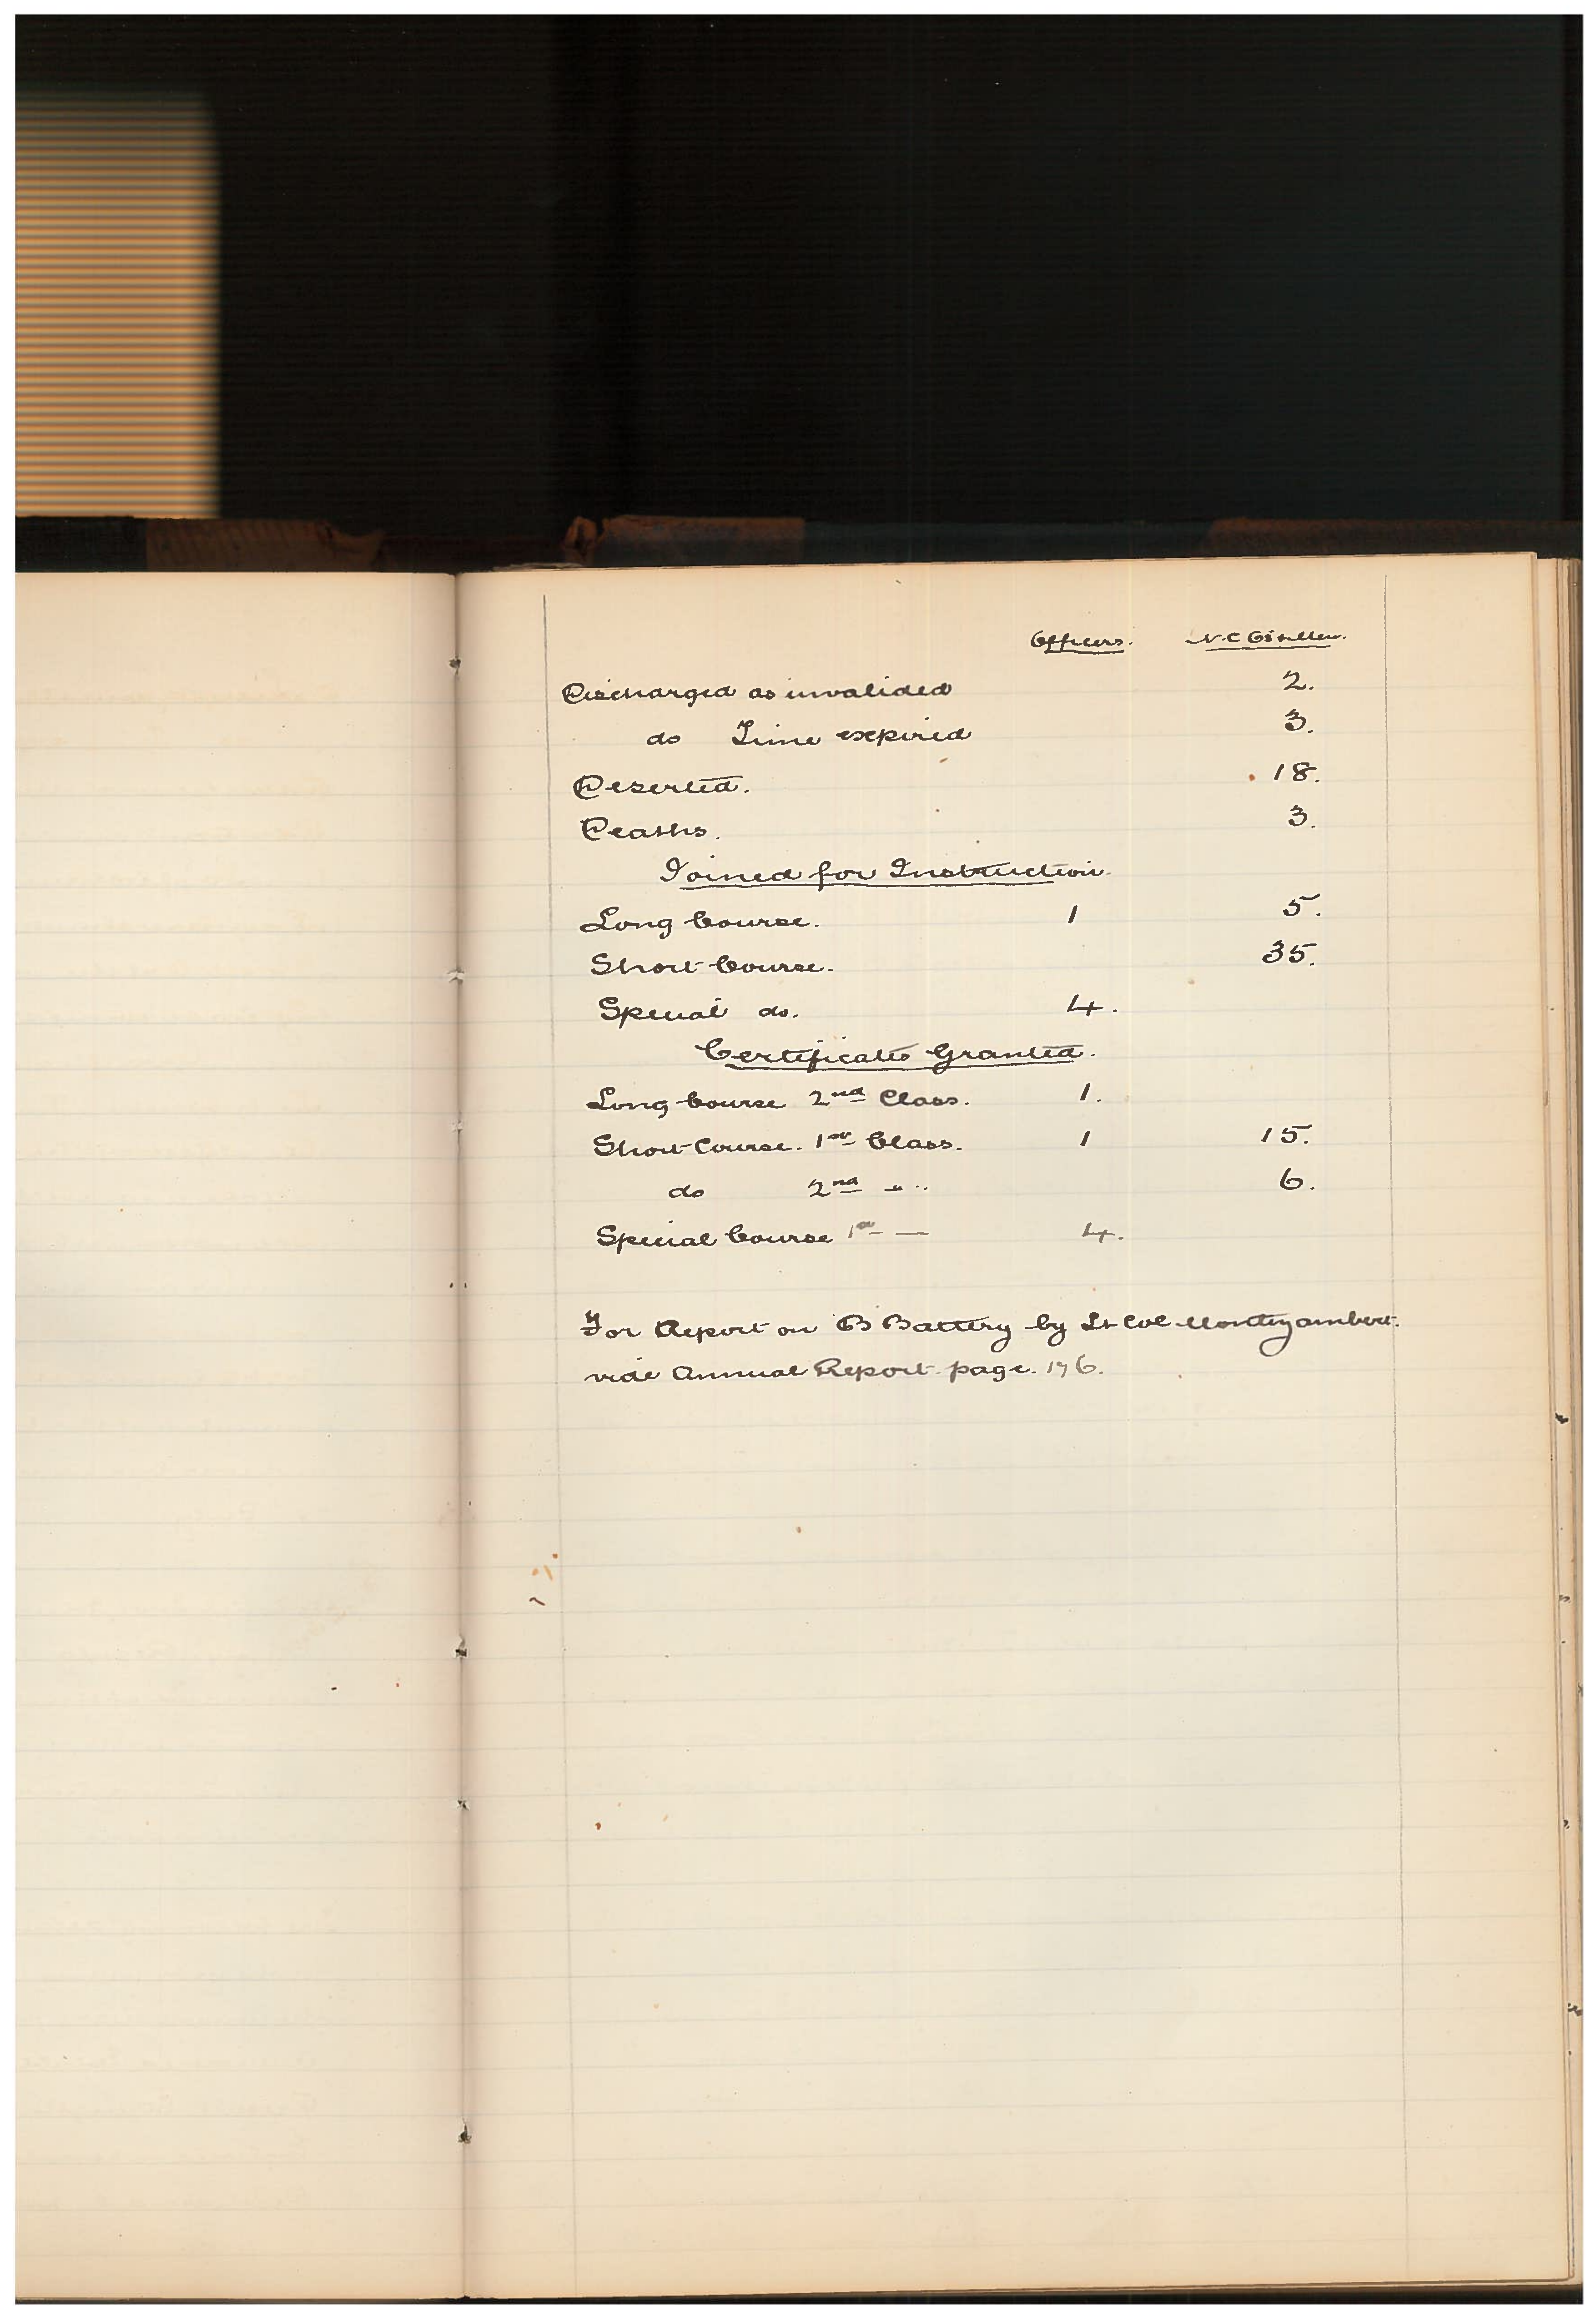 Officers. N.C Os & Men.
Discharged as invalided 2.
do Time expired 3.
Deserted. 18.
Deaths. 3.
Joined for Instruction.
Long Course. 1 5.
Short Course. 35.
Special do. 4.
Certificates Granted.
Long Course 2nd Class. 1.
Short Course. 1st Class. 1 15.
do 2nd " 6.
Special Course 1st — 4.
For Report on "B" Battery by Lt Col Montizambert.
vide Annual Report page. 176.